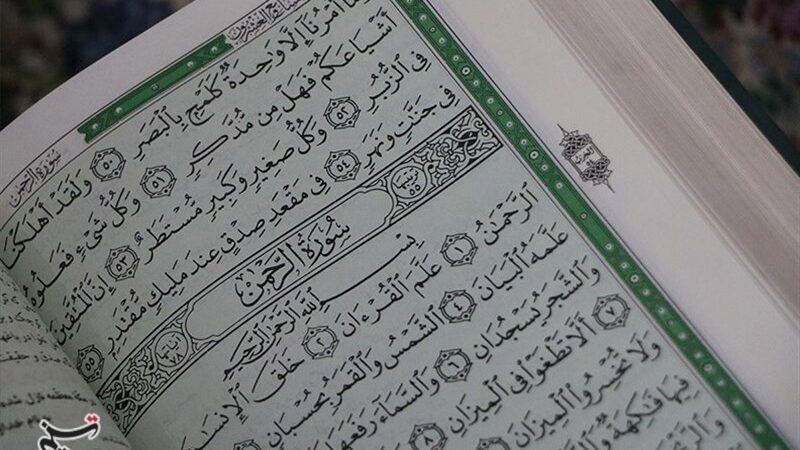 سورة الرحمن
وما أمرنا إلا واحدة كلمح بالبصر ۝٥٠ ولقد أهلكنا
أشياعكم فهل من مدكر ۝٥١ وكل شيء فعلوه
في الزبر ۝٥٢ وكل صغير وكبير مستطر ۝٥٣ إن المتقين
في جنت ونهر ۝٥٤ في مقعد صدق عند مليك مقتدر ۝٥٥
سورة الرحمن
بسم الله الرحمن الرحيم
الرحمن ۝١ علم القرءان ۝٢ خلق الإنس
علمه البيان ۝٤ الشمس والقمر بحسبان
والشجر يسجدان ۝٦ والسماء رفعها
۝٧ ألا تطغوا في الميزان ۝٨
ولا تخسروا الميزان
فيها فكهة
تسنیم